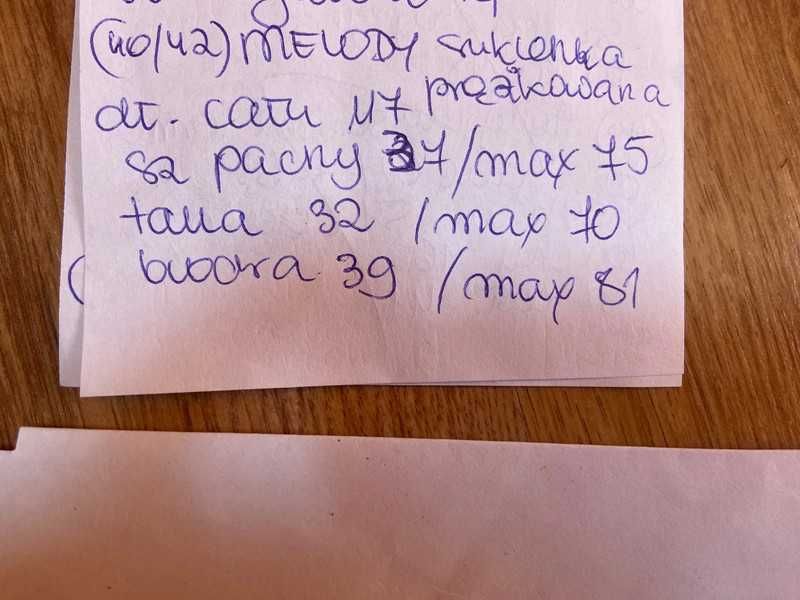 (40/42) MELODY sukienka
prążkowana
dł. cału 117
sz pachy 37/max 75
talia 32 /max 70
biodra 39 /max 81